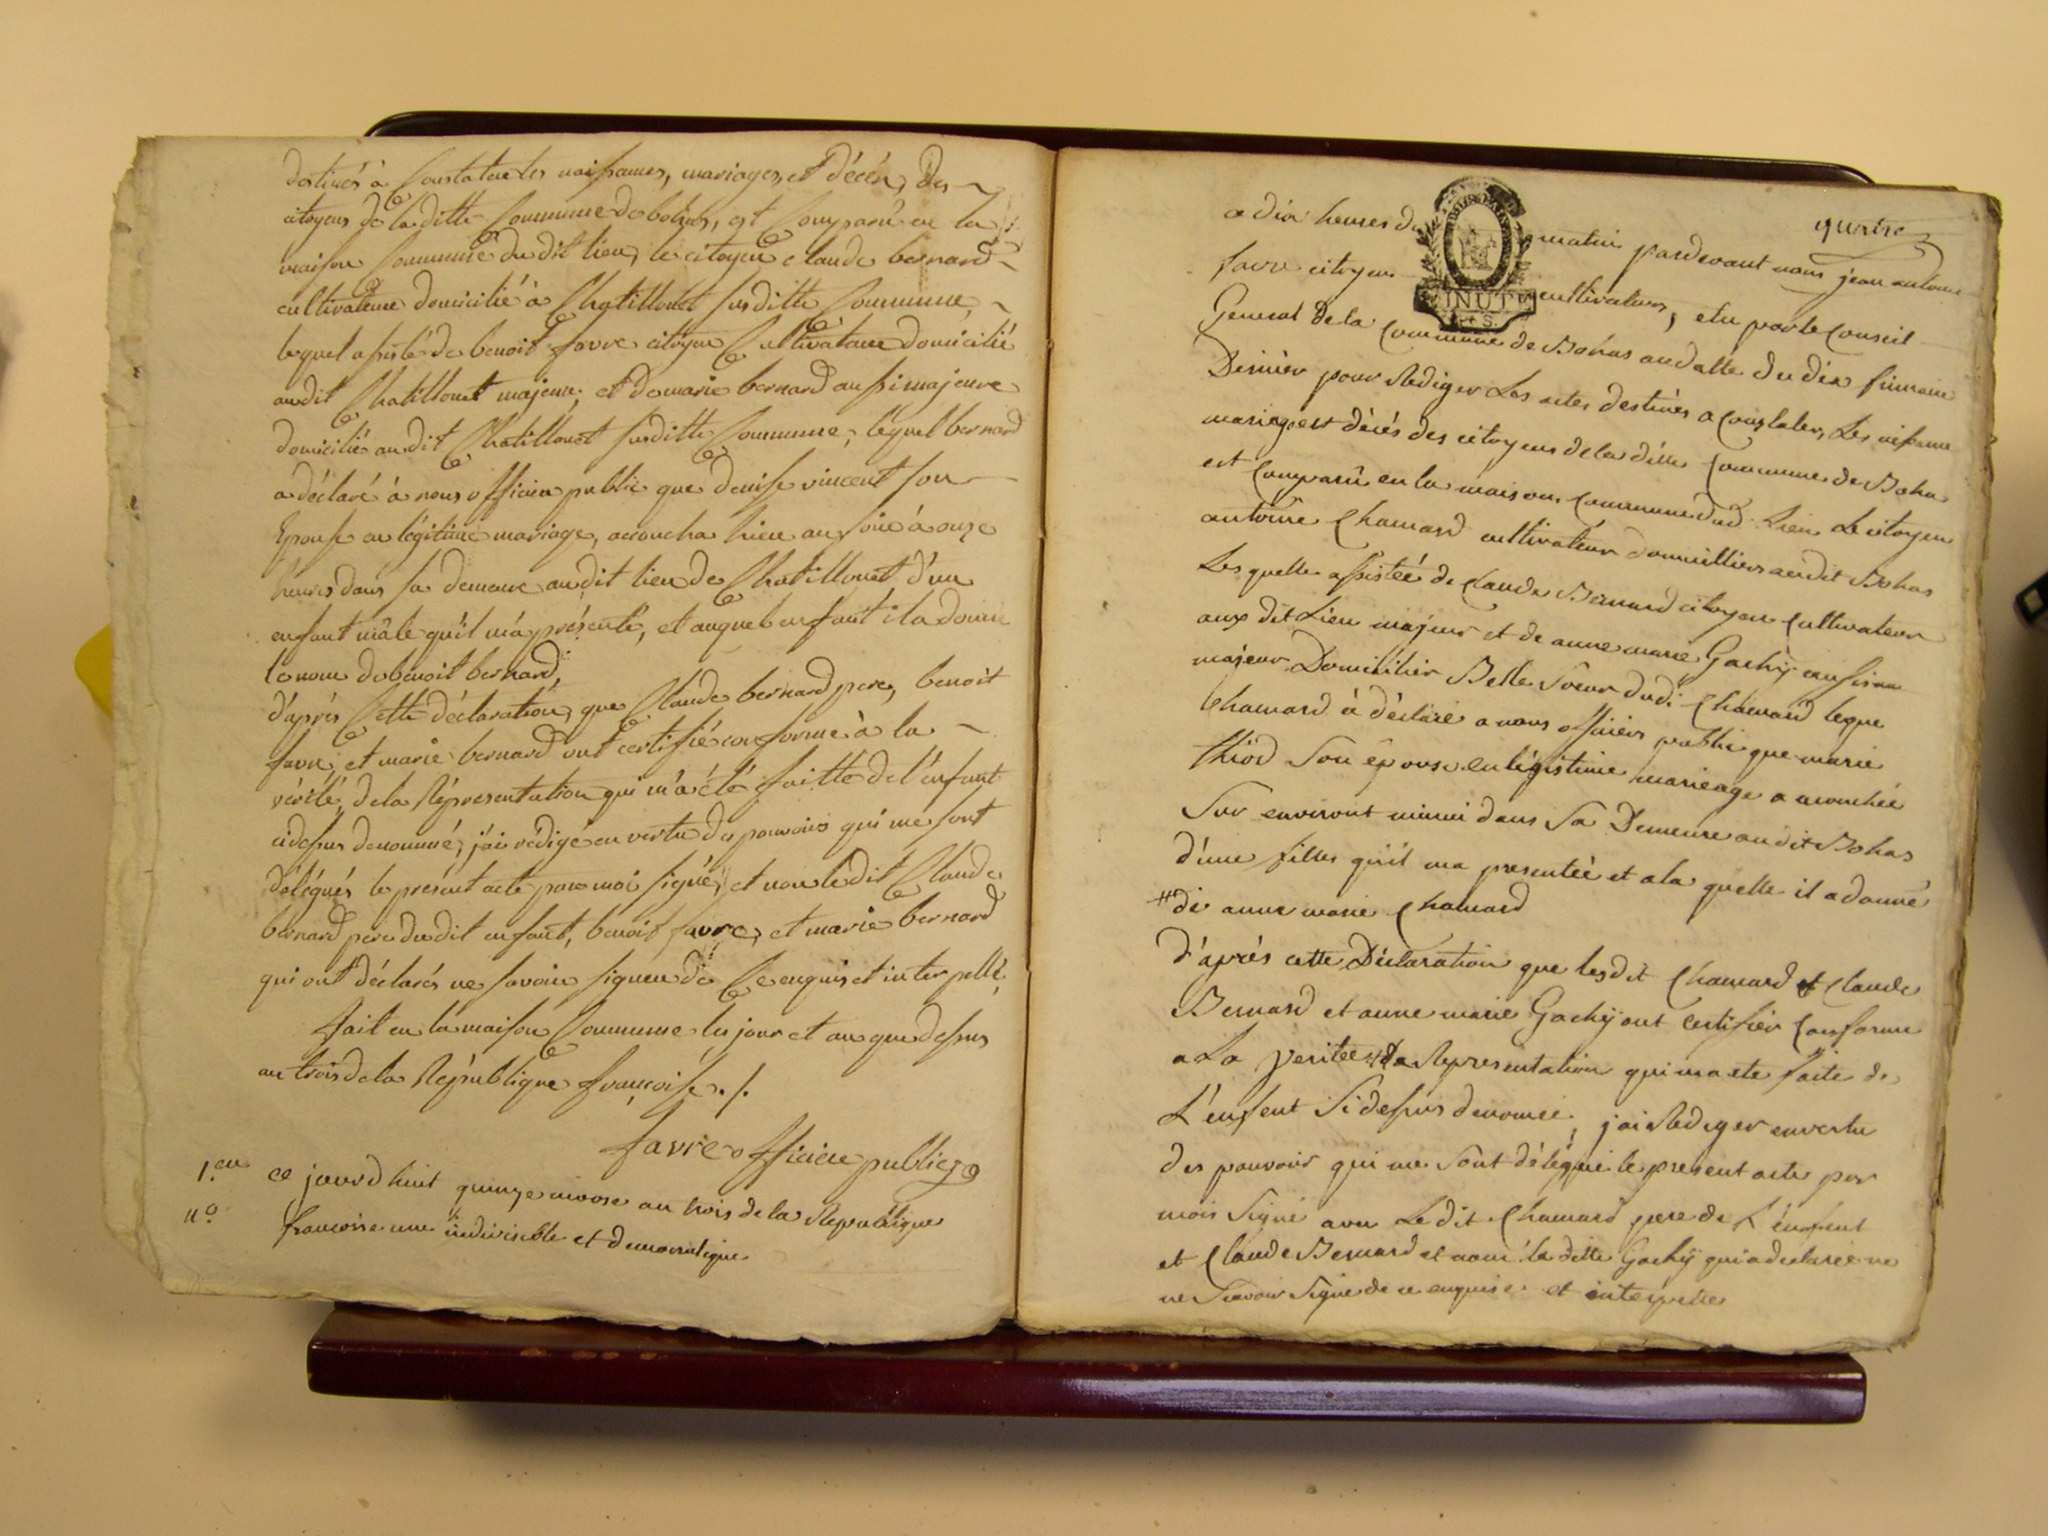 destinés à Constater les naissances, mariages, et décès, des
citoyens de la ditte Commune de bohas, est Comparû en la
maison Commune du dit lieu, le citoyen claude bernard
cultivateur domicilié à Chatillonet susditte Commune,
lequel assisté de benoit favre citoyen Cultivateur domicilié
audit Chatillonet majeur; et de marie bernard aussi majeure
domicilié audit Chatillonet susditte Commune, léquel bernard
a déclaré à nous officier public que denise vincent son
Epouse en légitime mariage, accoucha hier au soir à onze
heures dans sa demeure audit lieu de Chatillonet d'un
enfant mâle qu'il m'a présenté, et auquel enfant il a donné
le nom de benoit bernard,
d'après Cette déclaration, que Claude bernard pere, benoit
favre, et marie bernard ont certifié conforme à la
vérité, de la Répresentation qui m'a été faitte de l'enfant
cidessus denommé, j'ai rédigé en vertu des pouvoirs qui me sont
délégués le présent acte par moi signé, et non lédit Claude
bernard pere du dit enfant, benoit favre, et marie bernard
qui ont déclarés ne savoir signer de Ce enquis et interpellé.
fait en la maison Commune les jour et an que dessus
an trois de la République françoise ./.
favre officier public
1.er ce jourd huit quinze nivose an trois de la Republique
n.o francoise une indivisible et democratique
quatre
a dix heures du matin pardevant nous jean antoine
favre citoyen cultivateur, elu par le Conseil
General de la Commune de Bohas au datte du dix frimaire
Dernier pour Rediger Les actes destinés a Constater, Les nessance
mariages et décés des citoyens de la ditte Commune de Bohas
est Comparû en la maison Commune dud. Lieu Le citoyen
antoine Chamard cultivateur domicillier audit Bohas
Les quelle assistée de claude Bernard citoyen Cultivateur
aux dit Lieu majeur et de anne marie Gachÿ aussi
majeur Domicilier Belle Soeur dudi Chamard leque
Chamard à déclaré a nous officier public que marie
thiod Son épouse en légistime marieage a acouchée
Sur environt minui dans Sa Demeure audit Bohas
d'une filles qu'il ma presentée et a la quelle il a donné
# de anne marie Chamard
d'aprés cette Déclaration que lesdit Chamard et Claude
Bernard et anne marie Gachÿ ont certifiér Conforme
a La veritée # De la Representation qui ma ete faite de
L'enfent Si dessus denomée, j'ai Rediger en vertu
des pouvoir qui me sont délégué le present acte par
mois Signé avec Ledit Chamard pere de L'enfent
et Claude Bernard et non la ditte Gachÿ qui a declarée ne
ne Savoir Signé de ce enquise et interpelle